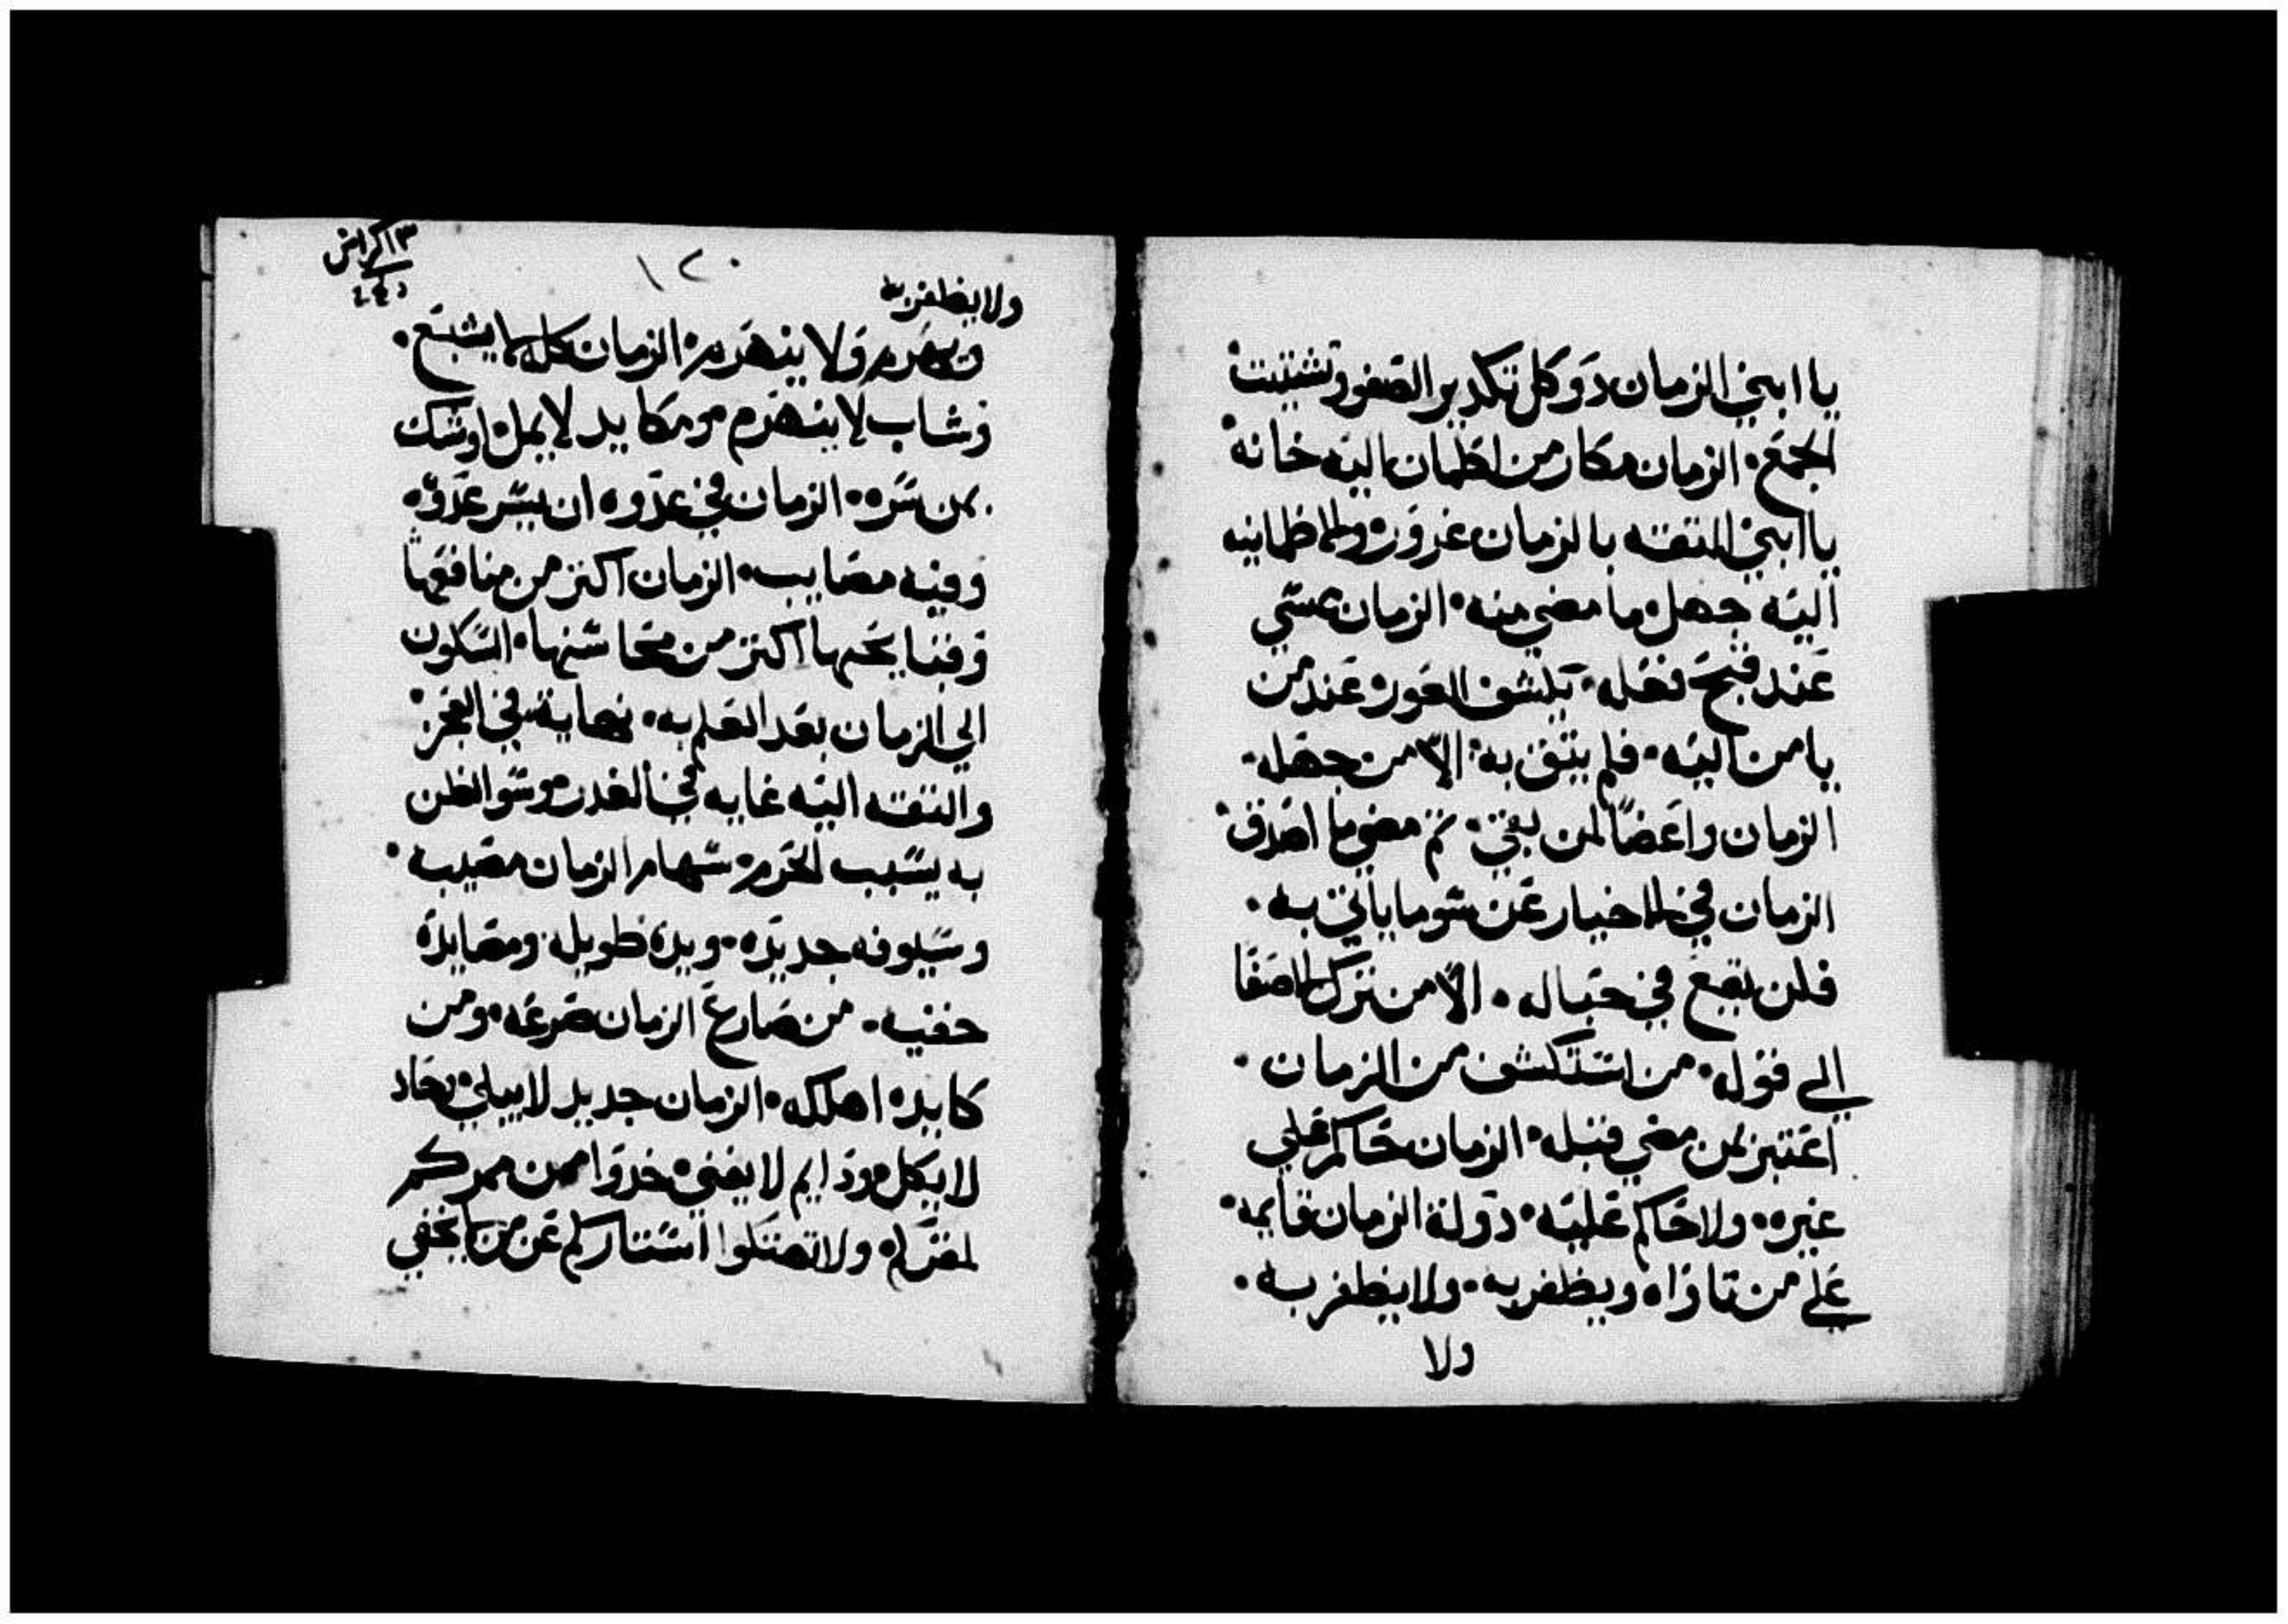 يا ابني الزمان دو كل تكدير الصفو وتشتيت
الجمع الزمان مكار من اطمان اليه خانه
يا ابني الثقه بالزمان غروره والاطمانيه
اليه جهل ما مضي منه الزمان
عند قبح فعله العوره عند من
يامن اليه فلم يثق به الا من جهله
الزمان واعضا لمن بقي ثم مضي ما اصدق
الزمان في الاخبار عن سو ما ياتي به
فلن يقع في حباله الا من ترك الاصغا
الي قوله من استكشف من الزمان
اعتبر بمن مضي قبله الزمان حاكم علي
غيره ولا حاكم عليه دولة الزمان قايمه
علي من ناواه ويظفر به ولا يظفر به
ولا
٣ ١ كراس
١٢٠
ولا يظفر به
ويهزم ولا ينهزم الزمان لا يشبع
وشاب لا ينهرم ومكايد لا يمل اوشك
بمن سره الزمان في عدوه ان يسر عدوه
وفيه مصايب الزمان اكثر من منافعها
وقبايحها اكثر من محاسنها السكون
الي الزمان بعد العلم به نهاية في العجز
والثقه اليه غايه في الغدر وسو الظن
به يسبب الحزم سهام الزمان مصيبه
وسيوفه جديده ويده طويله ومصايده
خفيه من صارع الزمان صرعه ومن
كابده اهلكه الزمان جديد لا يبلي وحاد
لا يكل ودايم لا يفني خدوا من ممركم
لمقركم ولا تهتكوا استاركم عن من لا يخفي